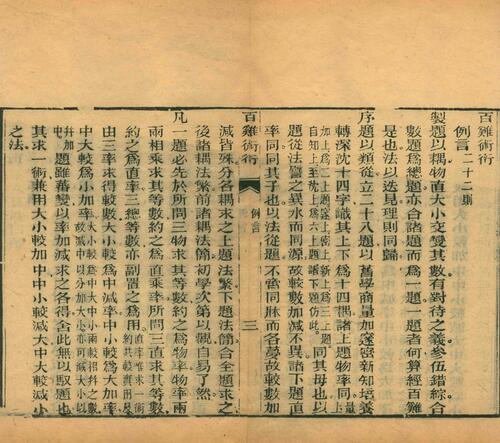 百雞術衍
例言二十二則
製題以耦物直大小交變其數有對待之義參伍錯綜合
數題爲總題亦合諸題而爲一題一題者何算經百雞
是也法以迭見理則同歸
序題以類從立二十八題以舊學商量加邃密新知培養
轉深沈十四字識其上下爲十四耦諸上題物率同
加上爲二上題邃上密上新上知上
自知上至沈上爲六上題諸下題仿此。
其同母也以
題從法譬之異水而同源故較數加減不異諸下題直
率同同其子也以法從題不啻同牀而各夢故較數加
百雞術衍
例言
三
減皆殊分各耦求之上題法繁下題法簡合全題求之
後諸耦法繁前諸耦法簡初學次第以觀自易了然
凡一題必先於所問三物求其等數約之爲物率物率兩
兩相乘求其等數約之爲直乘率所問三直求其等數
約之爲直率三總等數亦副置之爲用
由三率求得較數大小較爲中減率中小較爲大加率
中大較爲小加率
題雖蕃變以率加減求之各得舍此無以馭題也
其求一術兼用大小較加中中小較減大中大較減小
之法